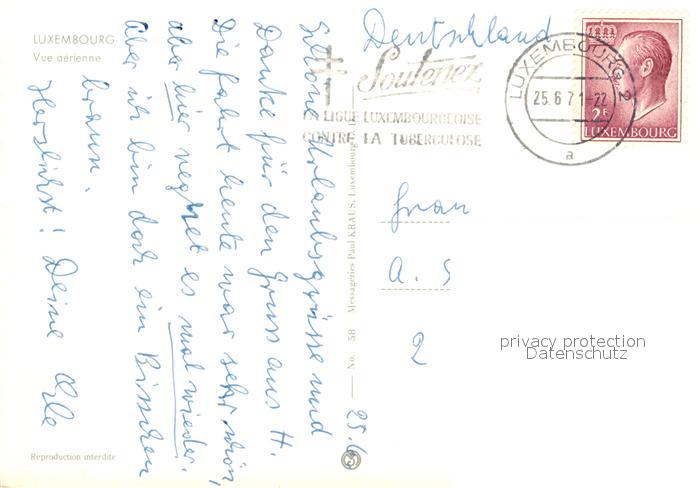 LUXEMBOURG
Vue aérienne
Reproduction interdite
25.6
Schöne Urlaubsgrüsse und
Danke für den Gruss aus H.
Die Fahrt heute war sehr schön,
aber hier regnet es mal wieder.
Aber ich bin doch ein Bisschen
braun.
Herzlichst! Deine
No. 58 Messageries Paul KRAUS, Luxembourg
Deutschland
Soutenez
LIGUE LUXEMBOURGEOISE
CONTRE LA TUBERCULOSE
LUXEMBOURG 2
25.6.71-22
a
2F
LUXEMBOURG
Frau
A. S
2
privacy protection
Datenschutz